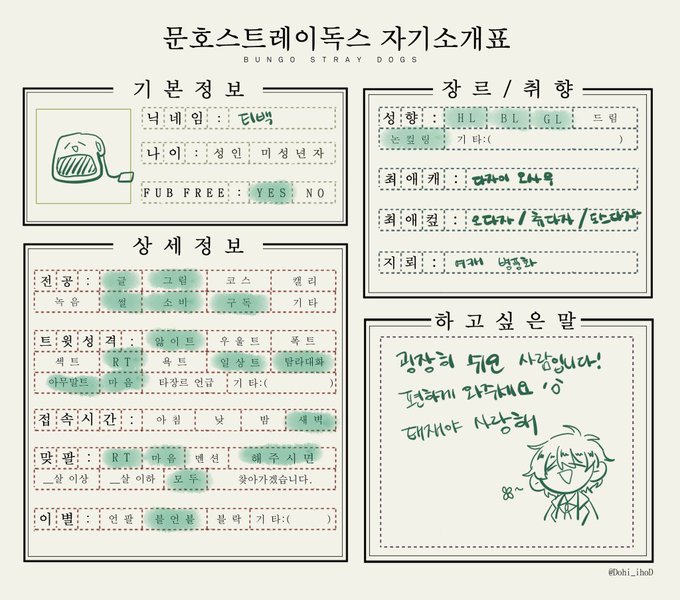 문호스트레이독스 자기소개표
BUNGO STRAY DOGS
기본정보
닉네임 : 티백
나이 : 성인 미성년자
FUB FREE : YES NO
상세정보
전공 : 글 그림 코스 캘리
녹음 썰 소비 구독 기타
트윗성격 : 앓이트 우울트 폭트
섹트 RT 욕트 일상트 탐라대화
아무말트 마음 타장르 언급 기타:( )
접속시간 : 아침 낮 밤 새벽
맞팔 : RT 마음 멘션 해주시면
__살 이상 __살 이하 모두 찾아가겠습니다.
이별 : 언팔 블언블 블락 기타:( )
장르/취향
성향 : HL BL GL 드림
논컾링 기타:( )
최애캐 : 다자이 오사무
최애컾 : 오다자/츄다자/도스다자
지뢰 : 여캐 병풍화
하고싶은말
굉장히 쉬운 사람입니다!
편하게 와주세요
태재야 사랑해
@Dohi_ihoD